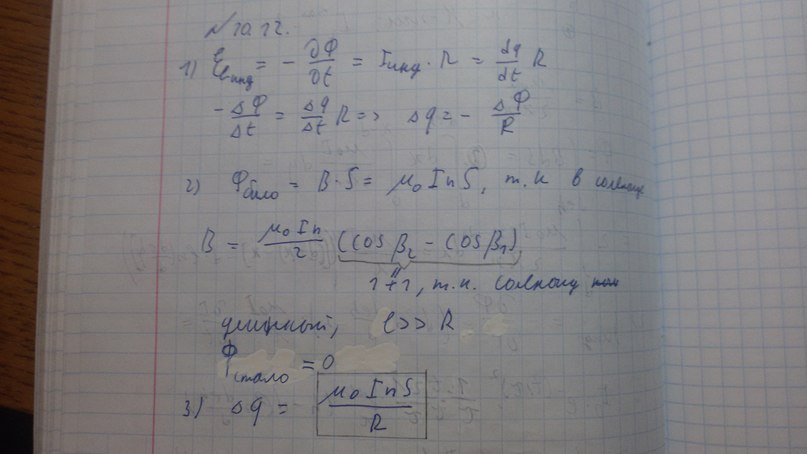 №10.12.
1) ℰинд = - ∂Φ/∂t = Iинд · R = dq/dt R
- ΔΦ/Δt = Δq/Δt R => Δq = - ΔΦ/R
2) Φбыло = B·S = μ₀InS, т.к в соленоиде
B = μ₀In/2 (cos β₂ - cos β₁)
"
1+1, т.к. соленоид
длинный, l>>R
Φстало = 0
3.) Δq = μ₀InS/R